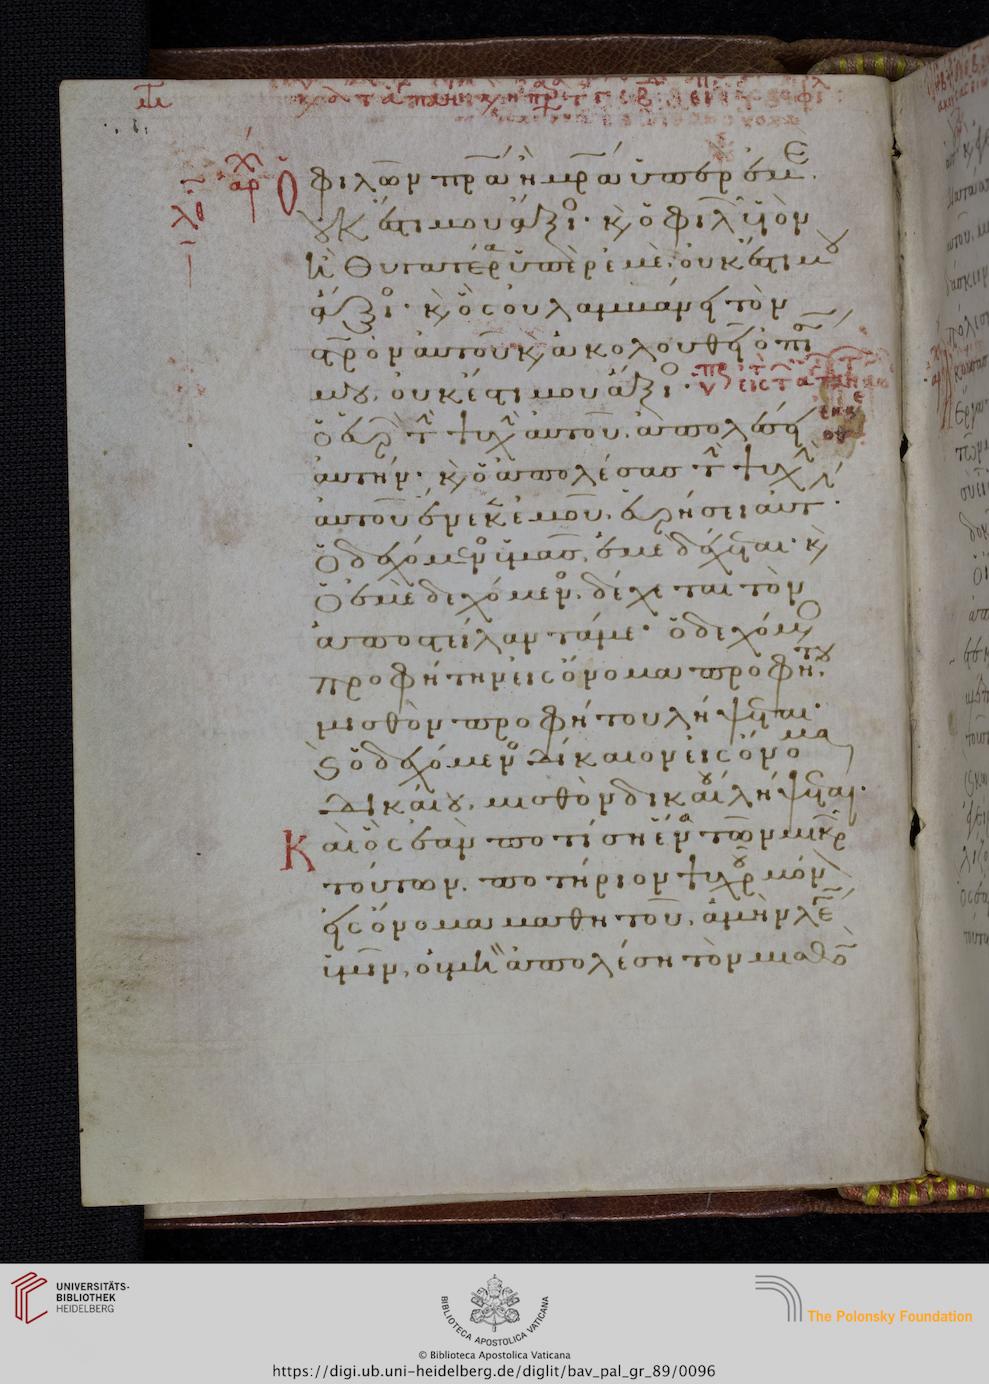 φιλῶν πρα ἢ μρα ὑπὲρ ἐμὲ
οὐκ ἔστι μου ἄξιο· κ ὁ φιλ υἱὸν
ἢ θυγατέρα ὑπὲρ ἐμὲ, οὐκ ἔστι μου
ἄξιο· κ ὃς οὐ λαμμάνει τὸν
στρὸν αὐτοῦ κ ἀκολουθεῖ ὀπι
μου, οὐκ ἔστι μου ἄξιο·
ὁ εὑρ τ ψυχ αὐτοῦ, ἀπολέσει
αὐτήν· κ ὁ ἀπολέσας τ ψυχὴ
αὐτοῦ ἕνεκεν ἐμοῦ, εὑρήσει αὐτ·
Ὁ δεχόμενο ὑμᾶς, ἐμὲ δέχεται· κ
Ὁ ἐμὲ δεχόμενο, δέχεται τὸν
ἀποστείλαντάμε· ὁ δεχόμ
προφήτην εἰς ὄνομα προφήτου,
μισθὸν προφήτου λήψεται·
κ ὁ δεχόμενο δίκαιον εἰς ὄνομα
δικαίου, μισθὸν δικαίου λήψεται·
Καὶ ὃς ἐὰν ποτίση ἕνα τῶν μικρ
τούτων, ποτήριον ψυχροῦ μόν
εἰς ὄνομα μαθητοῦ, ἀμὴν λέ
ὑμῖν, οὐμὴ ἀπολέση τὸν μισθὸ
UNIVERSITÄTS-
BIBLIOTHEK
HEIDELBERG
BIBLIOTECA APOSTOLICA VATICANA
The Polonsky Foundation
© Biblioteca Apostolica Vaticana
https://digi.ub.uni-heidelberg.de/diglit/bav_pal_gr_89/0096